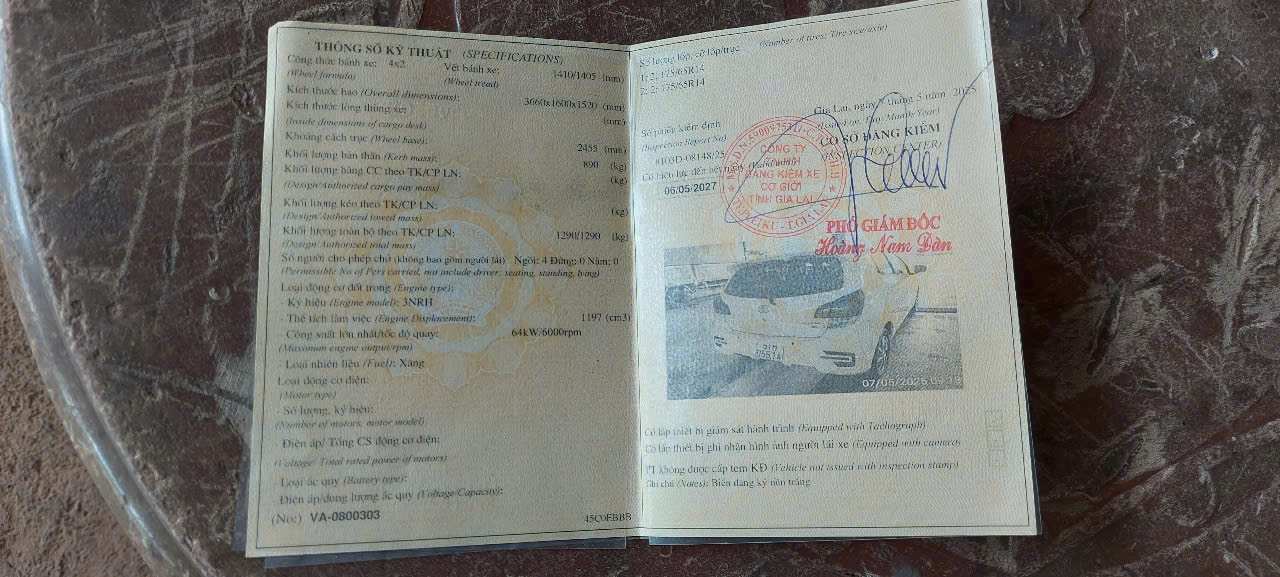 THÔNG SỐ KỸ THUẬT (SPECIFICATIONS)
Công thức bánh xe: 4x2 Vết bánh xe: 1410/1405 (mm)
(Wheel formula) (Wheel tread)
Kích thước bao (Overall dimensions): 3660x1600x1520 (mm)
Kích thước lòng thùng xe: (mm)
(Inside dimensions of cargo desk)
Khoảng cách trục (Wheel base): 2455 (mm)
Khối lượng bản thân (Kerb mass): 890 (kg)
Khối lượng hàng CC theo TK/CP LN: (kg)
(Design/Authorized cargo pay mass)
Khối lượng kéo theo TK/CP LN: (kg)
(Design/Authorized towed mass)
Khối lượng toàn bộ theo TK/CP LN: 1290/1290 (kg)
(Design/Authorized total mass)
Số người cho phép chở (không bao gồm người lái) Ngồi: 4 Đứng: 0 Nằm: 0
(Permissible No of Pers carried, not include driver: seating, standing, lying)
Loại động cơ đốt trong (Engine type):
- Ký hiệu (Engine model): 3NRH
- Thể tích làm việc (Engine Displacement): 1197 (cm3)
- Công suất lớn nhất/tốc độ quay: 64kW/6000rpm
(Maximum engine output/rpm)
- Loại nhiên liệu (Fuel): Xăng
Loại động cơ điện:
(Motor type)
- Số lượng, ký hiệu:
(Number of motors, motor model)
Điện áp/ Tổng CS động cơ điện:
(Voltage/ Total rated power of motors)
Loại ắc quy (Battery type):
Điện áp/dung lượng ắc quy (Voltage/Capacity):
(No:) VA-0800303 45C0EBBB
Số lượng lốp, cỡ lốp/trục (Number of tires; Tire size/axle)
1: 2; 175/65R14
2: 2; 175/65R14
Gia Lai, ngày 7 tháng 5 năm 2025
Số phiếu kiểm định
(Inspection Report No)
CƠ SỞ ĐĂNG KIỂM
(INSPECTION CENTER)
8103D-08148/25
Có hiệu lực đến hết ngày
06/05/2027
CÔNG TY
ĐĂNG KIỂM XE
CƠ GIỚI
TỈNH GIA LAI
PHÓ GIÁM ĐỐC
Hoàng Nam Dân
07/05/2025
Có lắp thiết bị giám sát hành trình (Equipped with Tachograph)
Có lắp thiết bị ghi nhận hình ảnh người lái xe (Equipped with camera)
PT không được cấp tem KĐ (Vehicle not issued with inspection stamp)
Ghi chú (Notes): Biển đăng ký nền trắng